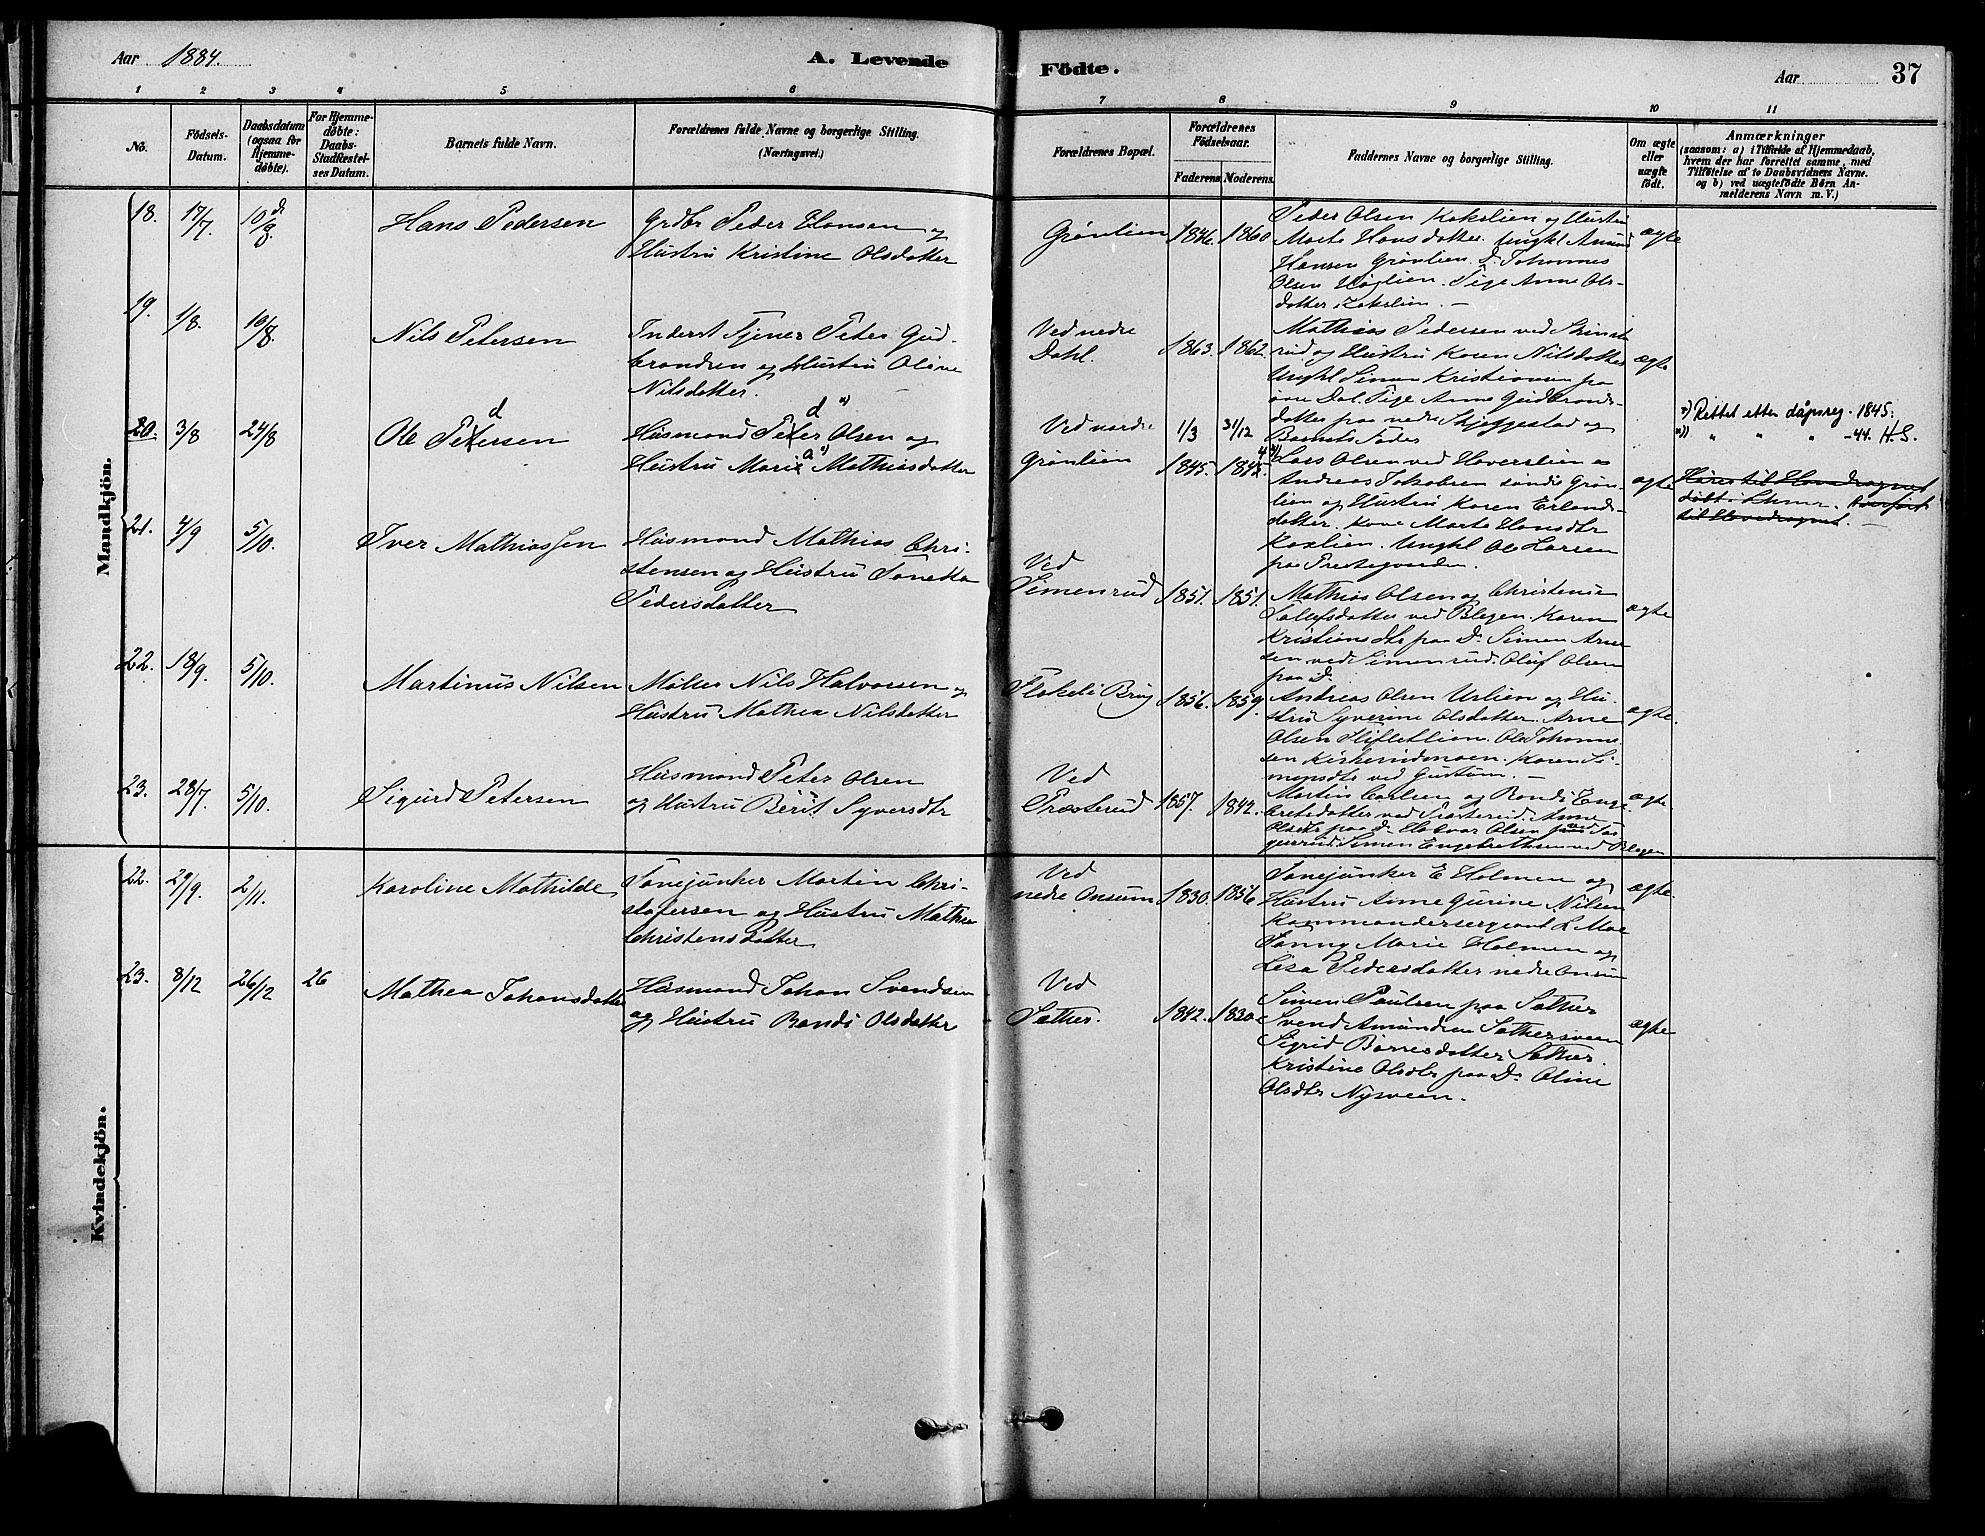 Aar 1884.
A. Levende
Födte.
Aar
37
1 2 3 4 5 6 7 8 9 10 11
No.
Födsels-Datum.
Daabsdatum (ogsaa for Hjemme-døbte).
For Hjemme-døbte: Daabs-Stadfæstel-ses Datum.
Barnets fulde Navn.
Forældrenes fulde Navne og borgerlige Stilling.
(Næringsvei.)
Forældrenes Bopæl.
Forældrenes Födselsaar.
Faderens. Moderens.
Faddernes Navne og borgerlige Stilling.
Om ægte eller uægte født.
Anmærkninger
(saasom: a) i Tilfælde af Hjemmedaab,
hvem der har forrettet samme, med
Tilföielse af to Daabsvidners Navne.
og b) ved uægtefödte Börn An-
melderens Navn m. V.)
Mandkjön.
18. 17/7. 10/8. Hans Pedersen
Grdbr Peder Hansen og
Hustru Kristine Olsdatter
Grønlien 1846. 1860
Peder Olsen Kokslien og Hustru
Marte Hansdatter. Ungkl Amund
Hansen Grønlien. D. Johannes
Olsen Høglien. Pige Anne Ols-
datter Kokslien. —
ægte
19. 1/8. 10/8. Nils Petersen
Inderst Tjener Peter Gud-
brandsen og Hustru Oline
Nilsdatter.
Ved nedre
Dahl. 1863. 1862.
Mathias Pedersen ved
rud og Hustru Karen Nilsdatter
Ungkl Simen Kristiansen paa
øvre Dal. Pige Anne Gudbrands-
datter paa nedre Skjeggestad og
Barnets Fader
ægte
20. 3/8 24/8 Ole Petersen
d
Husmand Peter Olsen og
d
Hustru Marie Mathiasdatter
a
Ved nordre
Grønlien
1/3 1845. 31/12 1845
4
Lars Olsen ved Haverslien
Andreas Jakobsen søndre Grøn-
lien og Hustru Karen Erlands-
datter. Kone Marte Hansdtr
Koxlien. Ungkl Ole Larsen
paa Prestegaarden.
ægte
Rettet etter dåpsreg. 1845.
" " " -44. H.S.
Høres til Hovedsognet
døbt i
til Hovedsognet. —
21. 4/9 5/10. Iver Mathiassen
Husmand Mathias Chri-
stensen og Hustru Tonetta
Pedersdatter
Ved
Simenrud 1851. 1851.
Mathias Olsen og Christense
datter ved Blegen. Karen
Kristiansdtr paa Do. Simen Arne
sen ved Simenrud. Oluf Olsen
paa D.
ægte
22. 18/9. 5/10. Martinus Nilsen
Møller Nils Halvorsen og
Hustru Mathea Nilsdatter
Brug 1856. 1859.
Andreas Olsen Urlien og Hu-
stru Syverine Olsdatter. Arne
Olsen Ole Johanne
sen Karen Si-
mensdtr ved —
ægte.
23. 28/7. 5/10. Sigurd Petersen
Husmand Peter Olsen
og Hustru Berit Syversdtr
Ved
Præsterud 1857. 1842.
Martin Carlsen og Randi Enge
bretsdatter ved Præsterud. Anne
Olsdtr paa Do. Halvor Olsen
Simen Engebrethsen ved Blegen
ægte
Kvindekjön.
22. 29/9. 2/11. Karoline Mathilde
Fanejunker Martin Chri-
stofersen og Hustru Mathea
Christensdatter
Ved
nedre Onsum 1830. 1856
Fanejunker E Holmen og
Hustru Anne Gurine Nilsen
Kommandersergeant L Moe
Fanny Marie Holmen og
Lisa Pedersdatter nedre Onsum
ægte.
23. 8/12 26/12 26 Mathea Johansdatter
Husmand Johan Svendsen
og Hustru Randi Olsdatter
Ved
Sæther. 1842. 1830
Simen Paulsen paa Sæther
Svend Amundsen Sæthersveen
Sigrid Børresdatter Sæther
Kristine Olsdtr paa Do. Oline
Olsdtr Nysveen.
ægte